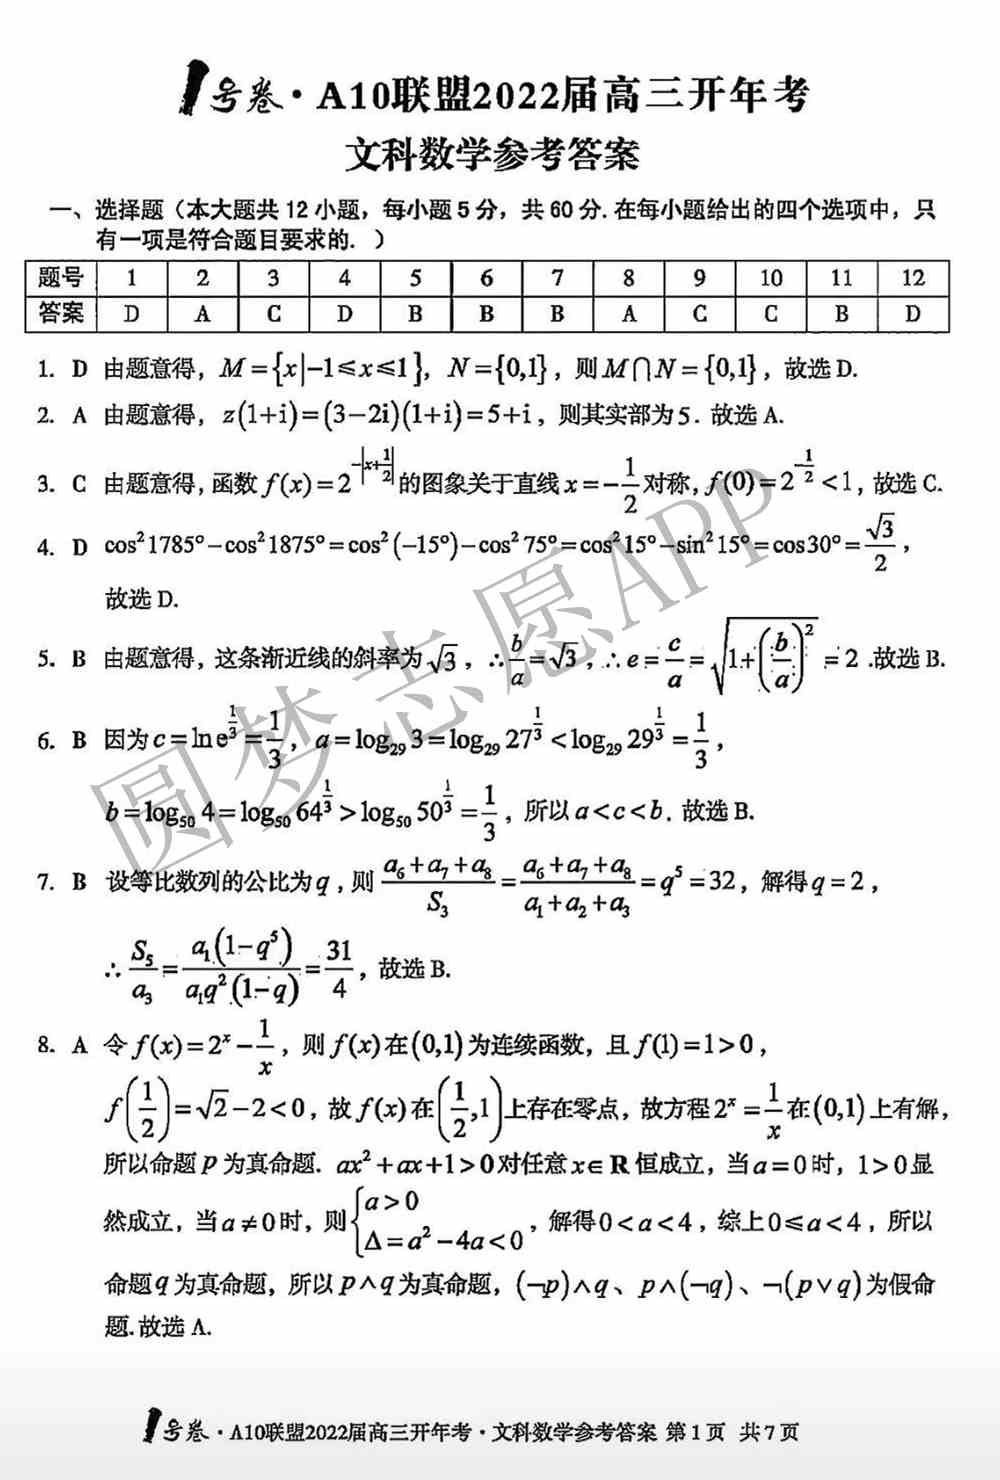 1号卷·A10联盟2022届高三开年考
文科数学参考答案
一、选择题（本大题共12小题，每小题5分，共60分.在每小题给出的四个选项中，只
有一项是符合题目要求的. ）
题号 1 2 3 4 5 6 7 8 9 10 11 12
答案 D A C D B B B A C C B D
1. D 由题意得，M={x|-1≤x≤1}，N={0,1}，则M∩N={0,1}，故选D.
2. A 由题意得，z(1+i)=(3-2i)(1+i)=5+i，则其实部为5. 故选A.
3. C 由题意得，函数f(x)=2^{-|x+\frac{1}{2}|}的图象关于直线x=-\frac{1}{2}对称，f(0)=2^{-\frac{1}{2}}<1，故选C.
4. D cos²1785°-cos²1875°=cos²(-15°)-cos²75°=cos²15°-sin²15°=cos30°=\frac{\sqrt{3}}{2}，
故选D.
5. B 由题意得，这条渐近线的斜率为√3，∴\frac{b}{a}=√3，∴e=\frac{c}{a}=\sqrt{1+(\frac{b}{a})^2}=2.故选B.
6. B 因为c=ln e^{\frac{1}{3}}=\frac{1}{3}，a=log₂₉3=log₂₉27^{\frac{1}{3}}<log₂₉29^{\frac{1}{3}}=\frac{1}{3}，
b=log₅₀4=log₅₀64^{\frac{1}{3}}>log₅₀50^{\frac{1}{3}}=\frac{1}{3}，所以a<c<b. 故选B.
7. B 设等比数列的公比为q，则\frac{a₆+a₇+a₈}{S₃}=\frac{a₆+a₇+a₈}{a₁+a₂+a₃}=q⁵=32，解得q=2，
∴\frac{S₅}{a₃}=\frac{a₁(1-q⁵)}{a₁q²(1-q)}=\frac{31}{4}，故选B.
8. A 令f(x)=2^x-\frac{1}{x}，则f(x)在(0,1)为连续函数，且f(1)=1>0，
f(\frac{1}{2})=√2-2<0，故f(x)在(\frac{1}{2},1)上存在零点，故方程2^x=\frac{1}{x}在(0,1)上有解，
所以命题p为真命题. ax²+ax+1>0对任意x∈R恒成立，当a=0时，1>0显
然成立，当a≠0时，则{a>0 Δ=a²-4a<0，解得0<a<4，综上0≤a<4，所以
命题q为真命题，所以p∧q为真命题，(¬p)∧q、p∧(¬q)、¬(p∨q)为假命
题.故选A.
圆梦志愿APP
1号卷·A10联盟2022届高三开年考·文科数学参考答案 第1页 共7页